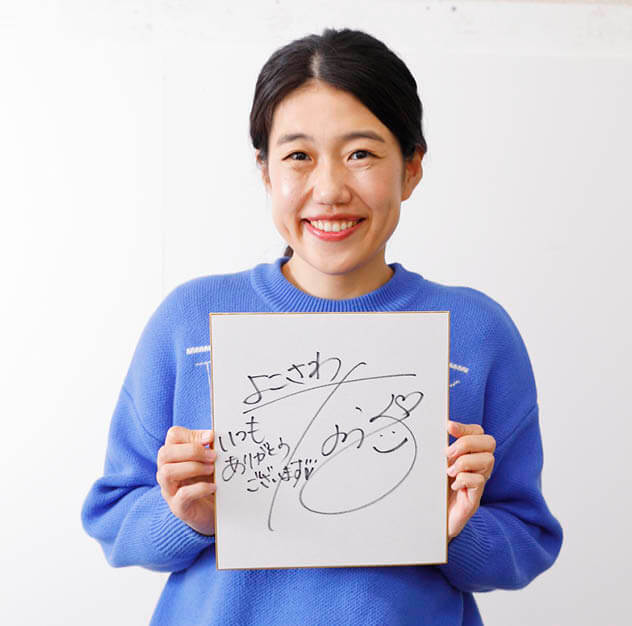 よこさわ
いつも
ありがとう
ございます